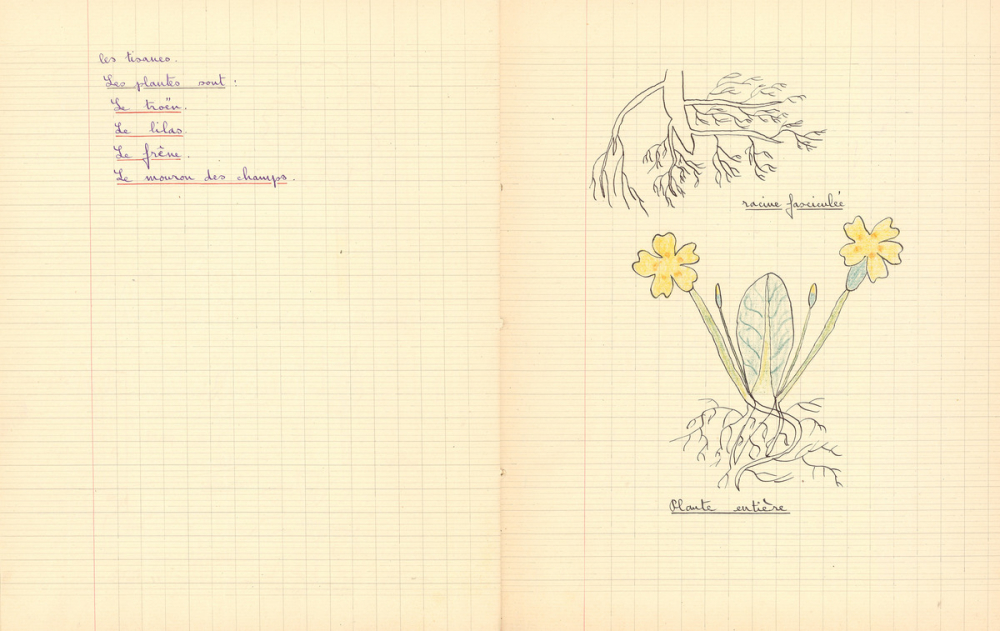 les tisanes.
Les plantes sont :
Le troën.
Le lilas.
Le frêne.
Le mouron des champs.
racine fasciculée
Plante entière